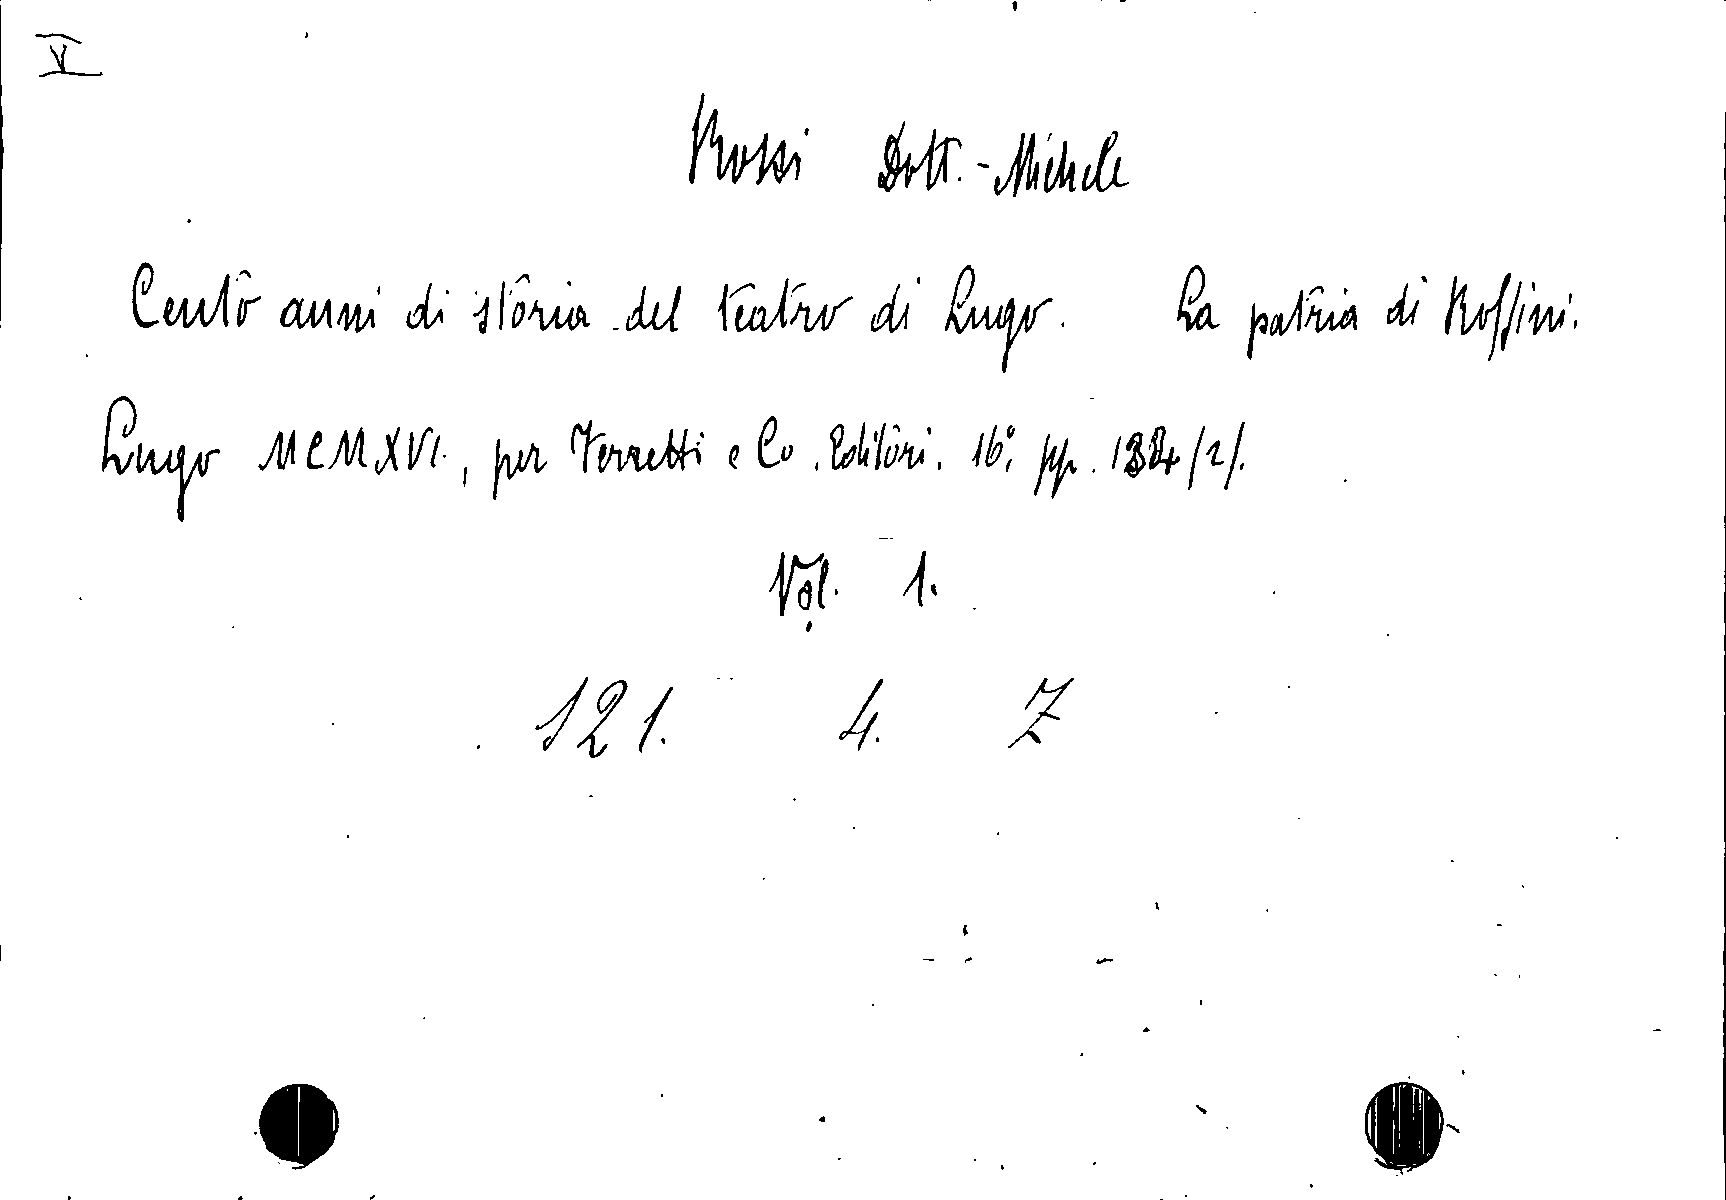 V
Rossi Dott. - Michele
Cento anni di storia del teatro di Lugo. La patria di Rossini.
Lugo MCMXVI., per Ferretti e Co. Editori. 16°. pp. 134/2/.
Vol. 1.
121. 4. Z